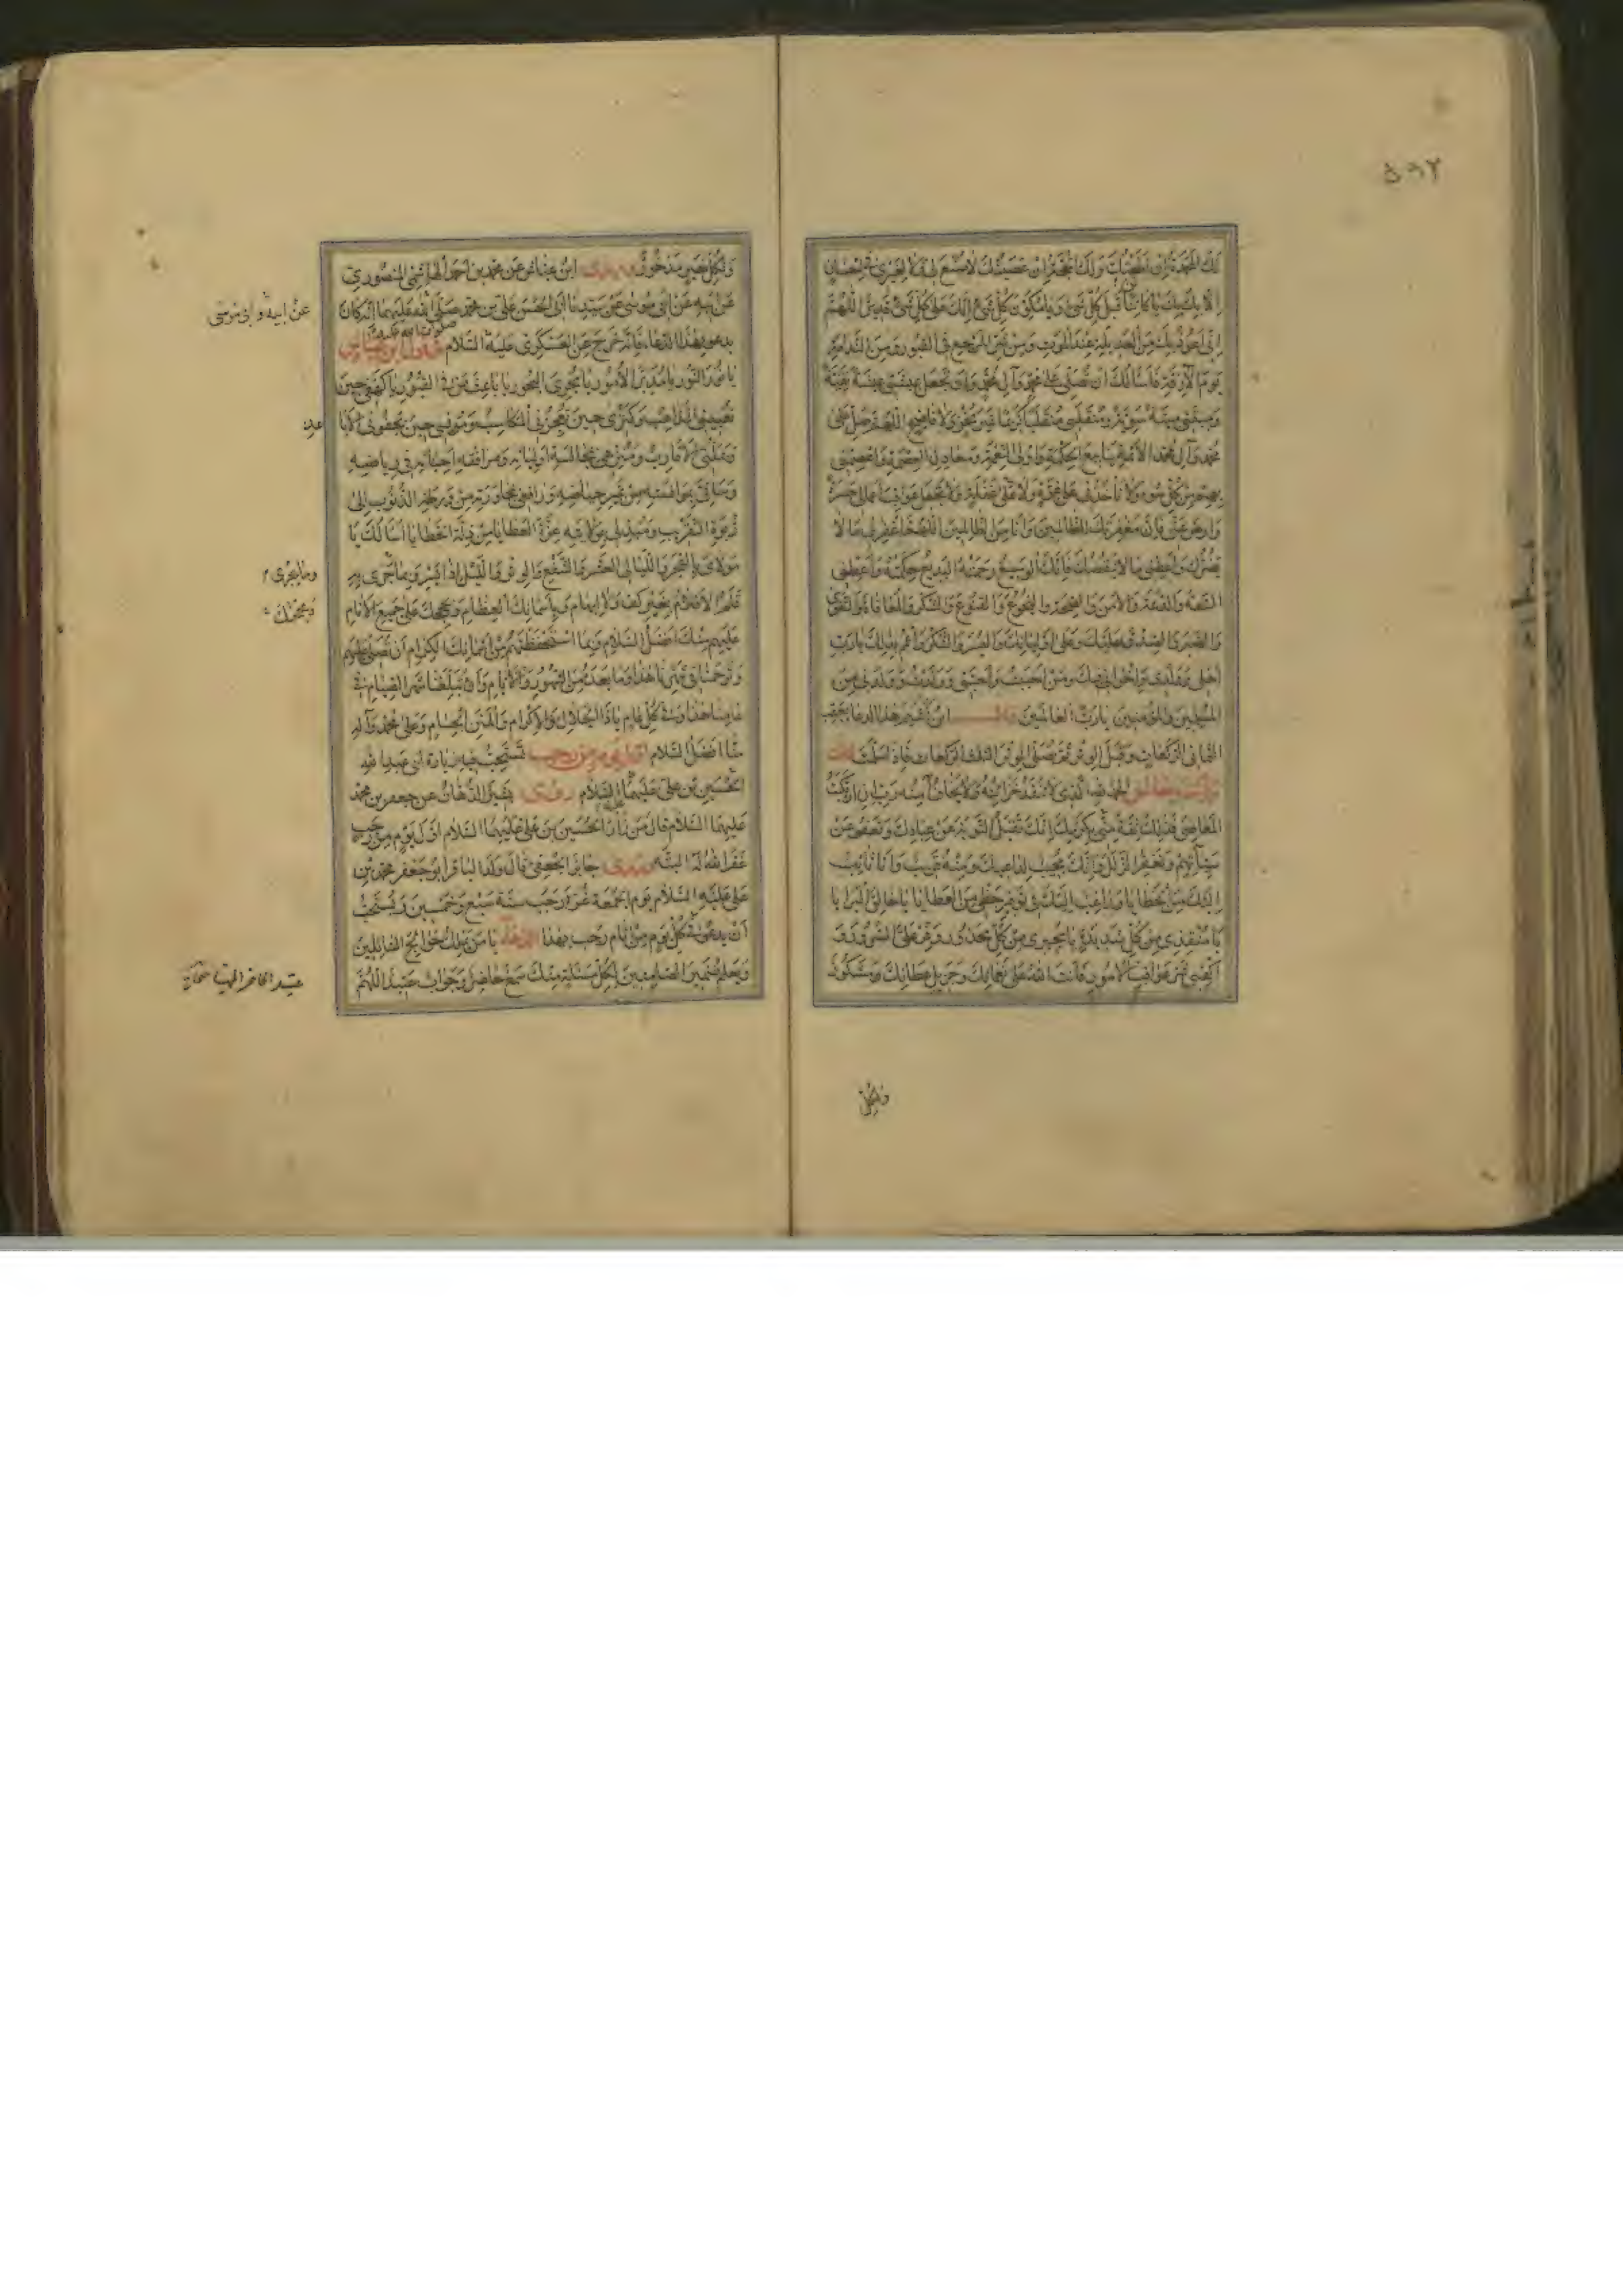 لَكَ الْحَمْدُ إِنْ أَطَعْتُكَ وَلَكَ الْحُجَّةُ إِنْ عَصَيْتُكَ لَا صُنْعَ لِي وَلَا لِغَيْرِي فِي إِحْسَانٍ
إِلَّا بِكَ يَا كَائِنًا قَبْلَ كُلِّ شَيْءٍ وَيَا مُكَوِّنَ كُلِّ شَيْءٍ إِنَّكَ عَلَى كُلِّ شَيْءٍ قَدِيرٌ اللَّهُمَّ
إِنِّي أَعُوذُ بِكَ مِنَ الْعَدِيلَةِ عِنْدَ الْمَوْتِ وَمِنْ شَرِّ الْمَرْجِعِ فِي الْقُبُورِ وَمِنَ النَّدَامَةِ
يَوْمَ الْآزِفَةِ فَأَسْأَلُكَ أَنْ تُصَلِّيَ عَلَى مُحَمَّدٍ وَآلِ مُحَمَّدٍ وَأَنْ تَجْعَلَ عَيْشِي عِيشَةً نَقِيَّةً
وَمِيتَتِي مِيتَةً سَوِيَّةً وَمُنْقَلَبِي مُنْقَلَبًا كَرِيمًا غَيْرَ مُخْزٍ وَلَا فَاضِحٍ اللَّهُمَّ صَلِّ عَلَى
مُحَمَّدٍ وَآلِ مُحَمَّدٍ الْأَئِمَّةِ يَنَابِيعِ الْحِكْمَةِ وَأُولِي النِّعْمَةِ وَمَعَادِنِ الْعِصْمَةِ وَاعْصِمْنِي
بِهِمْ مِنْ كُلِّ سُوءٍ وَلَا تَأْخُذْنِي عَلَى غِرَّةٍ وَلَا عَلَى غَفْلَةٍ وَلَا تَجْعَلْ عَوَاقِبَ أَعْمَالِي حَسْرَةً
وَارْضَ عَنِّي فَإِنَّ مَغْفِرَتَكَ لِلظَّالِمِينَ وَأَنَا مِنَ الظَّالِمِينَ اللَّهُمَّ اغْفِرْ لِي مَا لَا
يَضُرُّكَ وَأَعْطِنِي مَا لَا يَنْقُصُكَ فَإِنَّكَ الْوَسِيعُ رَحْمَتُهُ الْبَدِيعُ حِكْمَتُهُ وَأَعْطِنِي
السَّعَةَ وَالدَّعَةَ وَالْأَمْنَ وَالصِّحَّةَ وَالْخُشُوعَ وَالْقُنُوعَ وَالشُّكْرَ وَالْمُعَافَاةَ وَالتَّقْوَى
وَالصَّبْرَ وَالصِّدْقَ عَلَيْكَ وَعَلَى أَوْلِيَائِكَ وَالْيُسْرَ وَالشُّكْرَ وَاعْمُمْ بِذَلِكَ يَا رَبِّ
أَهْلِي وَوَلَدِي وَإِخْوَانِي فِيكَ وَمَنْ أَحْبَبْتُ وَأَحَبَّنِي وَوَلَدْتُ وَوَلَدَنِي مِنَ
الْمُسْلِمِينَ وَالْمُؤْمِنِينَ يَا رَبَّ الْعَالَمِينَ قال ابن أشيم هذا الدعا بعقب
الثماني الركعات وقبل الوتر ثم تصلي الوتر الثلث الركعات فإذا سلمت قلت
وأنت جالس الْحَمْدُ لِلَّهِ الَّذِي لَا تَنْفَدُ خَزَائِنُهُ وَلَا يَخَافُ آمِنُهُ رَبِّ إِنِ ارْتَكَبْتُ
الْمَعَاصِيَ فَذَلِكَ ثِقَةٌ مِنِّي بِكَرَمِكَ إِنَّكَ تَقْبَلُ التَّوْبَةَ عَنْ عِبَادِكَ وَتَعْفُو عَنْ
سَيِّئَاتِهِمْ وَتَغْفِرُ الزَّلَلَ وَإِنَّكَ مُجِيبٌ لِدَاعِيكَ وَمِنْهُ قَرِيبٌ وَأَنَا تَائِبٌ
إِلَيْكَ مِنَ الْخَطَايَا وَرَاغِبٌ إِلَيْكَ فِي تَوْفِيرِ حَظِّي مِنَ الْعَطَايَا يَا خَالِقَ الْبَرَايَا
يَا مُنْقِذِي مِنْ كُلِّ شَدِيدَةٍ يَا مُجِيرِي مِنْ كُلِّ مَحْذُورٍ وَفِّرْ عَلَيَّ السُّرُورَ وَ
اكْفِنِي شَرَّ عَوَاقِبِ الْأُمُورِ فَأَنْتَ اللَّهُ عَلَى نَعْمَائِكَ وَجَزِيلِ عَطَائِكَ مَشْكُورٌ
ولكل
وَلِكُلِّ خَيْرٍ مَذْخُورٌ وروى ابن عياش عن محمد بن أحمد الهاشمي المنصوري
عن أبيه عن أبي موسى عن سيدنا أبي الحسن علي بن محمد صلى الله عليهما أنه كان
يدعو بهذا الدعاء فإنه خرج عن العسكري عليه السلام في قول ابن عياش
يَا نُورَ النُّورِ يَا مُدَبِّرَ الْأُمُورِ يَا مُجْرِيَ الْبُحُورِ يَا بَاعِثَ مَنْ فِي الْقُبُورِ يَا كَهْفِي حِينَ
تُعْيِينِي الْمَذَاهِبُ وَكَنْزِي حِينَ تُعْجِزُنِي الْمَكَاسِبُ وَمُونِسِي حِينَ تَجْفُونِي الْأَبَا
وَتَمَلُّنِي الْأَقَارِبُ وَمُنَزِّهِي بِمُجَالَسَةِ أَوْلِيَائِهِ وَمُرَافَقَةِ أَحِبَّائِهِ فِي رِيَاضِهِ
وَسَاقِيَّ بِمُؤَانَسَتِهِ مِنْ نَمِيرِ حِيَاضِهِ وَرَافِعِي بِمُجَاوَرَتِهِ مِنْ وَرْطَةِ الذُّنُوبِ إِلَى
رَبْوَةِ التَّقْرِيبِ وَمُبَدِّلِي بِوَلَايَتِهِ عِزَّةَ الْعَطَايَا مِنْ ذِلَّةِ الْخَطَايَا أَسْأَلُكَ يَا
مَوْلَايَ بِالْفَجْرِ وَاللَّيَالِي الْعَشْرِ وَالشَّفْعِ وَالْوَتْرِ وَاللَّيْلِ إِذَا يَسْرِ وَبِمَا جَرَى بِهِ
قَلَمُ الْأَقْلَامِ بِغَيْرِ كَفٍّ وَلَا إِبْهَامٍ وَبِأَسْمَائِكَ الْعِظَامِ وَبِحُجَجِكَ عَلَى جَمِيعِ الْأَنَامِ
عَلَيْهِمْ مِنْكَ أَفْضَلُ السَّلَامِ وَبِمَا اسْتَحْفَظْتَهُمْ مِنْ أَسْمَائِكَ الْكِرَامِ أَنْ تُصَلِّيَ عَلَيْهِمْ
وَتَرْحَمَنَا فِي شَهْرِنَا هَذَا وَمَا بَعْدَهُ مِنَ الشُّهُورِ وَالْأَيَّامِ وَأَنْ تُبَلِّغَنَا شَهْرَ الصِّيَامِ فِي
عَامِنَا هَذَا وَفِي كُلِّ عَامٍ يَا ذَا الْجَلَالِ وَالْإِكْرَامِ وَالْمِنَنِ الْجِسَامِ وَعَلَى مُحَمَّدٍ وَآلِهِ
مِنَّا أَفْضَلُ السَّلَامِ أول يوم من رجب تستحب فيه زيارة أبي عبد الله
الحسين بن علي عليهما السلام روى بشير الدهان عن جعفر بن محمد
عليهما السلام قال من زار الحسين بن علي عليهما السلام أول يوم من رجب
غفر الله له البتة وروى جابر الجعفي قال ولد الباقر أبو جعفر محمد بن
علي عليه السلام يوم الجمعة غرة رجب سنة سبع وخمسين ويستحب
أن يدعو في كل يوم من أيام رجب بهذا الدعاء يَا مَنْ يَمْلِكُ حَوَائِجَ السَّائِلِينَ
وَيَعْلَمُ ضَمِيرَ الصَّامِتِينَ لِكُلِّ مَسْئَلَةٍ مِنْكَ سَمْعٌ حَاضِرٌ وَجَوَابٌ عَتِيدٌ اللَّهُمَّ
عن أبيه وأبي موسى
عد
وما يجري